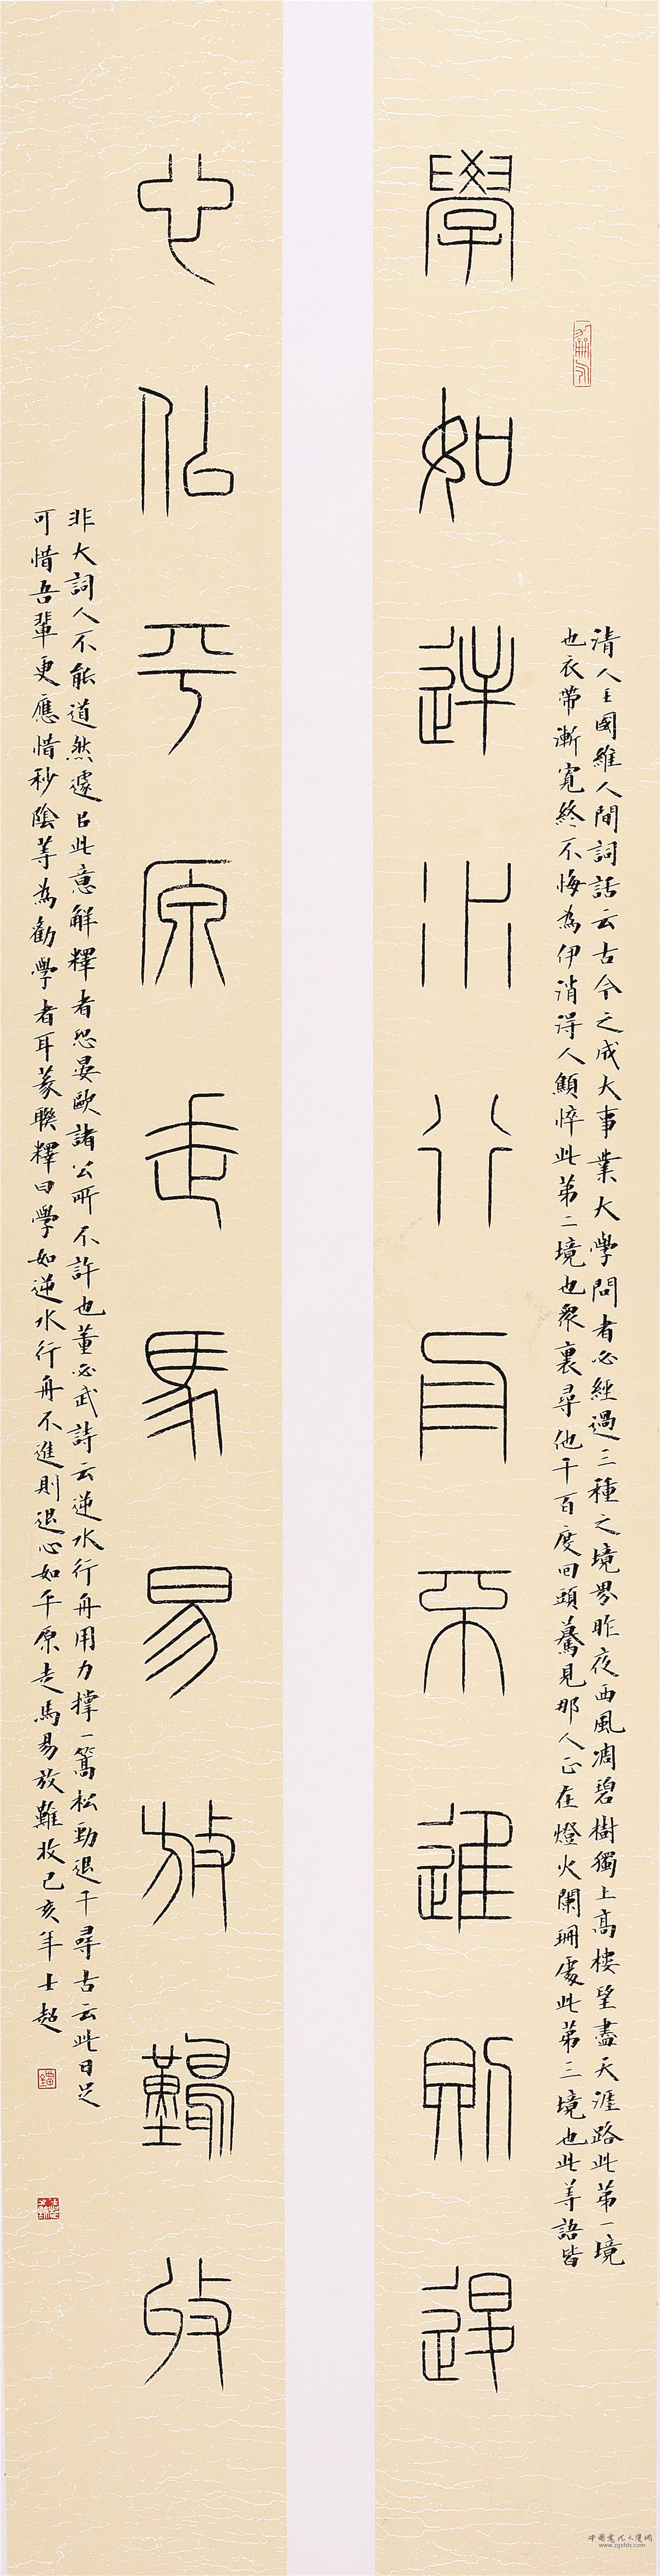 學如逆水行舟不進則退
心佀平原走馬易放難收
清人王國維人間詞話云古今之成大事業大學問者必經過三種之境界昨夜西風凋碧樹獨上高樓望盡天涯路此第一境
也衣帶漸寬終不悔為伊消得人顦悴此第二境也衆裏尋他千百度回頭驀見那人正在燈火闌珊處此第三境也此等語皆
非大詞人不能道然遽㠯此意解釋者恐晏歐諸公所不許也董必武詩云逆水行舟用力撐一篙松勁退千尋古云此日足
可惜吾輩更應惜秒陰等為勸學者耳篆聯釋曰學如逆水行舟不進則退心如平原走馬易放難收己亥年士超
www.zgsfds.com